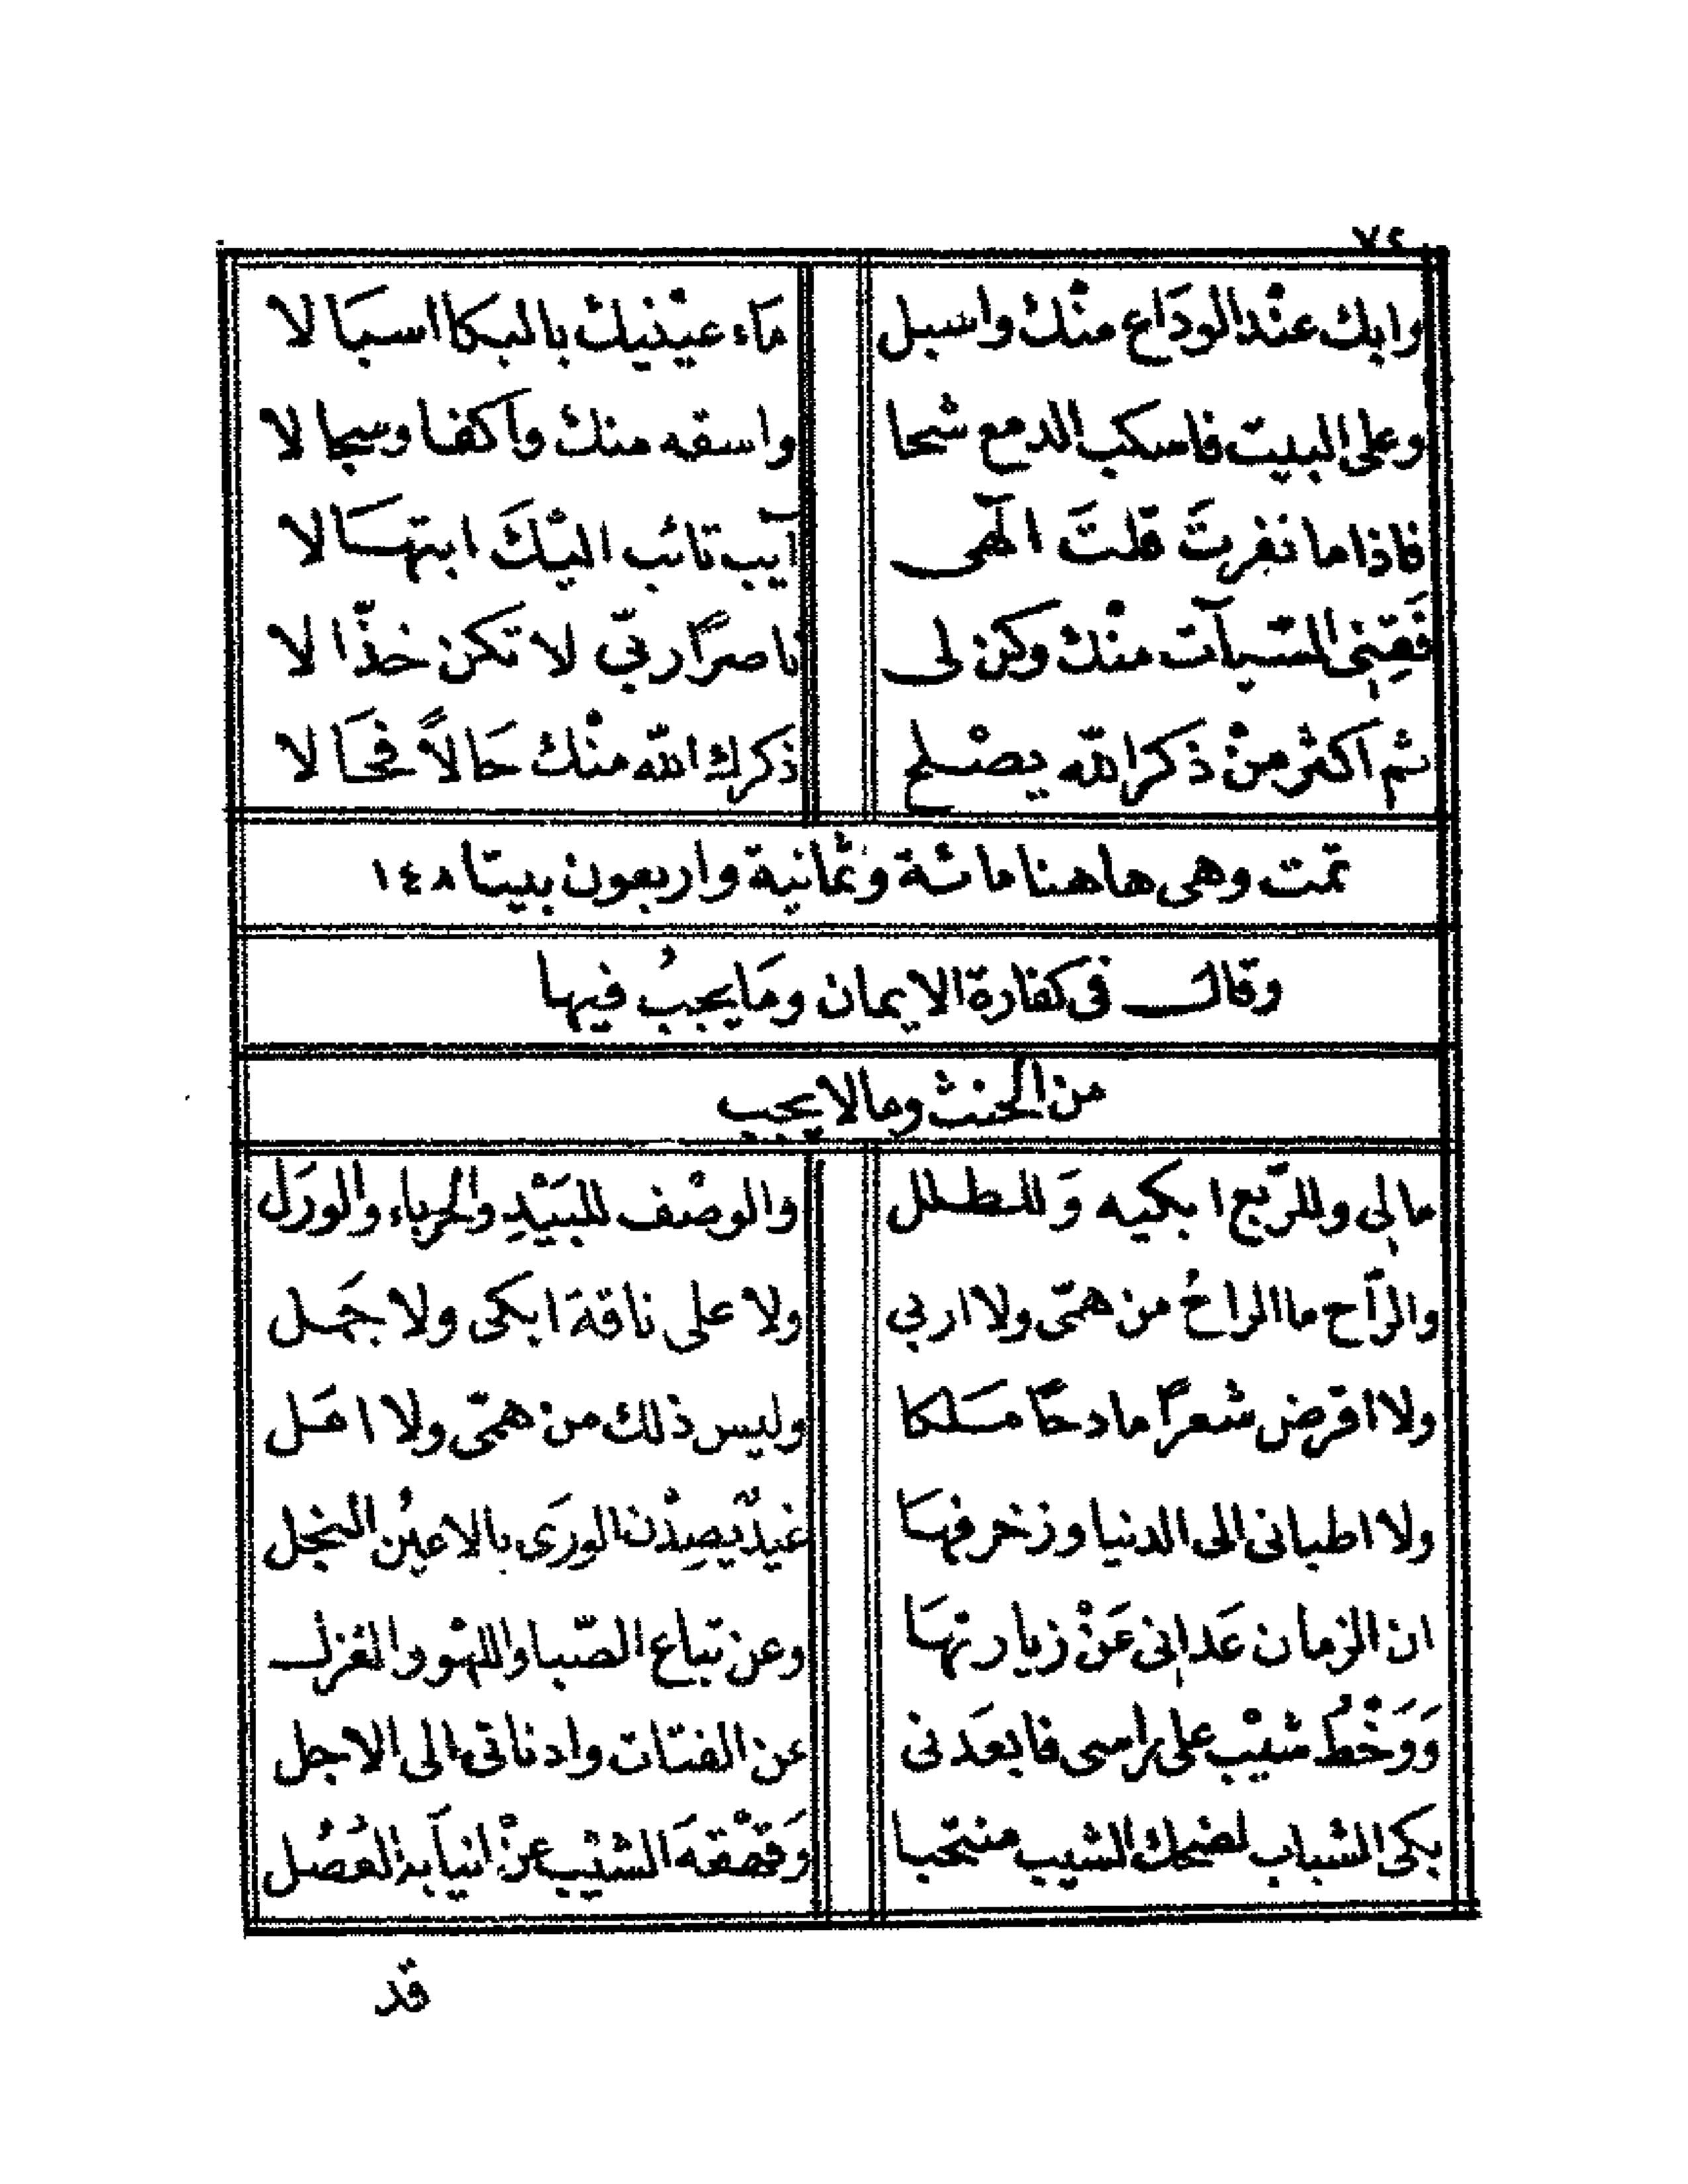 ٧٤
وابك عنْد الودَاع منْك واسبل مَاء عيْنيك بالبكا اسبَالا
وعلى البيت فاسكب الدمع شحا واسقه منك وآكفا وسجالا
فاذا ما نفرتَ قلتَ الٓهى آيب تائب اليْكَ ابتهَالا
فَقِنِى السّيآت منْك وكن لى ناصرًا ربّى لا تكن خذّالا
ثم اكثر منْ ذكر الله يصْلح ذكرك الله منْك حَالاً فحَالا
تمت وهى هاهنا مائة وثمانية واربعون بيتا ١٤٨
وقال فى كفارة الايمان ومَا يجبُ فيها
من الحنث وما لا يجب
ما لِى وللرّبع ابكيه وَللطلل والوصْف للبَيْدِ والحرباء والورَل
والرّاح ما الراحُ من همّى ولا اربى ولا على ناقة ابكى ولا جَمل
ولا اقرض شعرًا مادحًا مَلكا وليس ذلك من همّى ولا امَل
ولا اطبانى الى الدنيا وزخرفهَا غيدٌ يصِدْن الورَى بالاعيُن النجل
ان الزمان عَدانِى عَنْ زيارتهَا وعن تباع الصّبا واللهْو والغزل
وَوَخْطُ شيْب على راسى فابعَدنى عن الفتات وادنانى الى الاجل
بكى الشباب لضحك الشيب منتحبا وَقهْقهَ الشيْب عنْ انيآبه العُصُل
قد